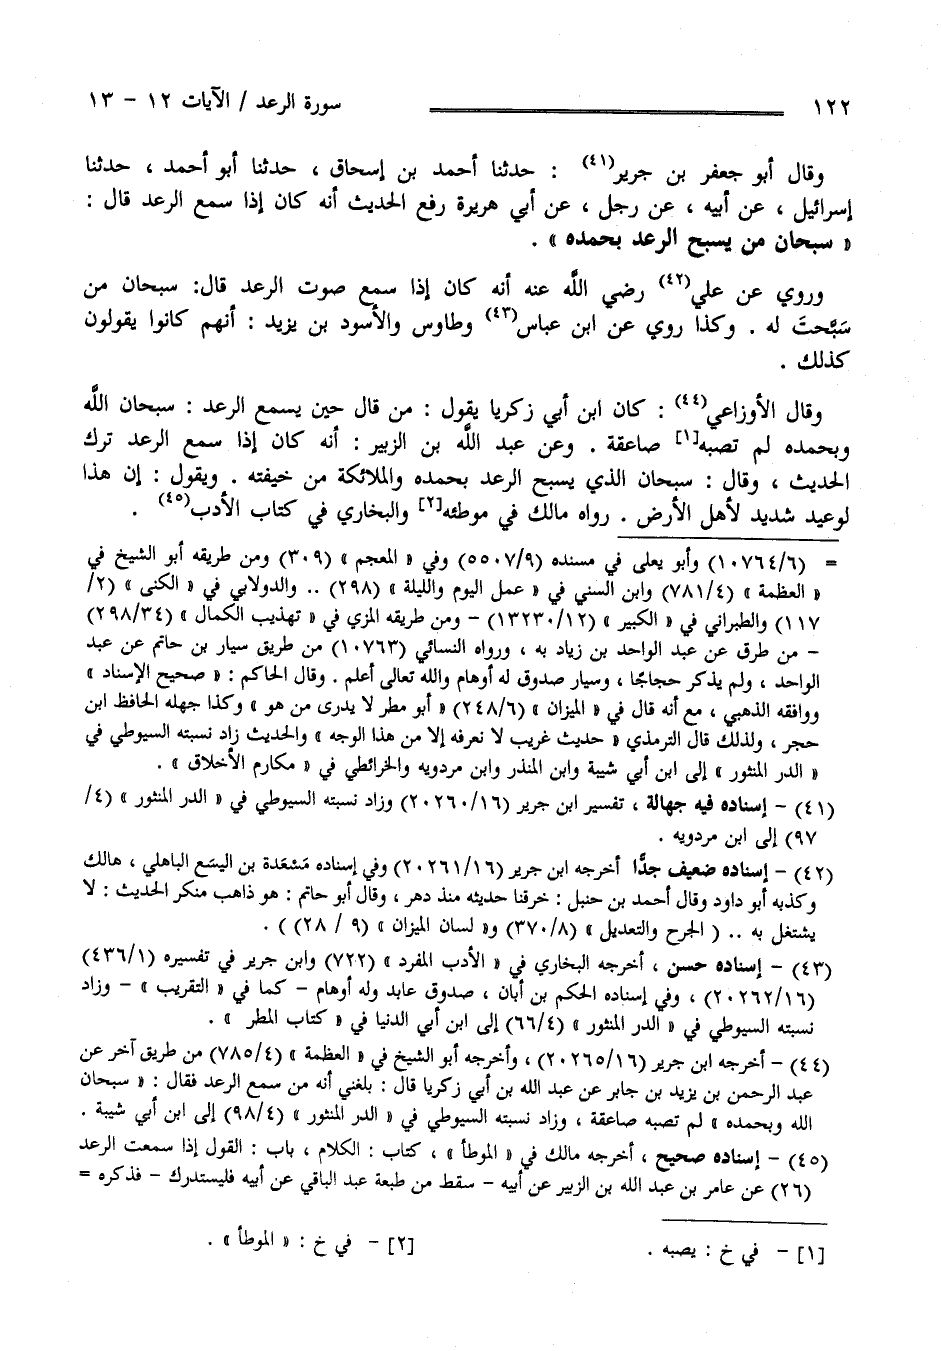 ١٢٢ سورة الرعد / الآيات ١٢ - ١٣
وقال أبو جعفر بن جرير(٤١) : حدثنا أحمد بن إسحاق ، حدثنا أبو أحمد ، حدثنا
إسرائيل ، عن أبيه ، عن رجل ، عن أبي هريرة رفع الحديث أنه كان إذا سمع الرعد قال :
« سبحان من يسبح الرعد بحمده » .
وروي عن علي(٤٢) رضي اللَّه عنه أنه كان إذا سمع صوت الرعد قال: سبحان من
سَبَّحتَ له . وكذا روي عن ابن عباس(٤٣) وطاوس والأسود بن يزيد : أنهم كانوا يقولون
كذلك .
وقال الأوزاعي(٤٤) : كان ابن أبي زكريا يقول : من قال حين يسمع الرعد : سبحان اللَّه
وبحمده لم تصبه[١] صاعقة . وعن عبد اللَّه بن الزبير : أنه كان إذا سمع الرعد ترك
الحديث ، وقال : سبحان الذي يسبح الرعد بحمده والملائكة من خيفته . ويقول : إن هذا
لوعيد شديد لأهل الأرض . رواه مالك في موطئه[٢] والبخاري في كتاب الأدب(٤٥) .
= (١٠٧٦٤/٦) وأبو يعلى في مسنده (٥٥٠٧/٩) وفي « المعجم » (٣٠٩) ومن طريقه أبو الشيخ في
« العظمة » (٧٨١/٤) وابن السني في « عمل اليوم والليلة » (٢٩٨) .. والدولابي في « الكنى » (٢/
١١٧) والطبراني في « الكبير » (١٣٢٣٠/١٢) - ومن طريقه المزي في « تهذيب الكمال » (٢٩٨/٣٤)
- من طرق عن عبد الواحد بن زياد به ، ورواه النسائي (١٠٧٦٣) من طريق سيار بن حاتم عن عبد
الواحد ، ولم يذكر حجاجًا ، وسيار صدوق له أوهام والله تعالى أعلم . وقال الحاكم : « صحيح الإسناد »
ووافقه الذهبي ، مع أنه قال في « الميزان » (٢٤٨/٦) « أبو مطر لا يدرى من هو » وكذا جهله الحافظ ابن
حجر ، ولذلك قال الترمذي « حديث غريب لا نعرفه إلا من هذا الوجه » والحديث زاد نسبته السيوطي في
« الدر المنثور » إلى ابن أبي شيبة وابن المنذر وابن مردويه والخرائطي في « مكارم الأخلاق » .
(٤١) - إسناده فيه جهالة ، تفسير ابن جرير (٢٠٢٦٠/١٦) وزاد نسبته السيوطي في « الدر المنثور » (٤/
٩٧) إلى ابن مردويه .
(٤٢) - إسناده ضعيف جدًّا أخرجه ابن جرير (٢٠٢٦١/١٦) وفي إسناده مَسْعَدة بن اليسَع الباهلي ، هالك
وكذبه أبو داود وقال أحمد بن حنبل : خرقنا حديثه منذ دهر ، وقال أبو حاتم : هو ذاهب منكر الحديث : لا
يشتغل به .. ( الجرح والتعديل » (٣٧٠/٨) و« لسان الميزان » (٩ / ٢٨) ) .
(٤٣) - إسناده حسن ، أخرجه البخاري في « الأدب المفرد » (٧٢٢) وابن جرير في تفسيره (٤٣٦/١)
(٢٠٢٦٢/١٦) ، وفي إسناده الحكم بن أبان ، صدوق عابد وله أوهام - كما في « التقريب » - وزاد
نسبته السيوطي في « الدر المنثور » (٦٦/٤) إلى ابن أبي الدنيا في « كتاب المطر » .
(٤٤) - أخرجه ابن جرير (٢٠٢٦٥/١٦) ، وأخرجه أبو الشيخ في « العظمة » (٧٨٥/٤) من طريق آخر عن
عبد الرحمن بن يزيد بن جابر عن عبد الله بن أبي زكريا قال : بلغني أنه من سمع الرعد فقال : « سبحان
الله وبحمده » لم تصبه صاعقة ، وزاد نسبته السيوطي في « الدر المنثور » (٩٨/٤) إلى ابن أبي شيبة .
(٤٥) - إسناده صحيح ، أخرجه مالك في « الموطأ » ، كتاب : الكلام ، باب : القول إذا سمعت الرعد
(٢٦) عن عامر بن عبد الله بن الزبير عن أبيه - سقط من طبعة عبد الباقي عن أبيه فليستدرك - فذكره =
[١] - في خ : يصبه . [٢] - في خ : « الموطأ » .